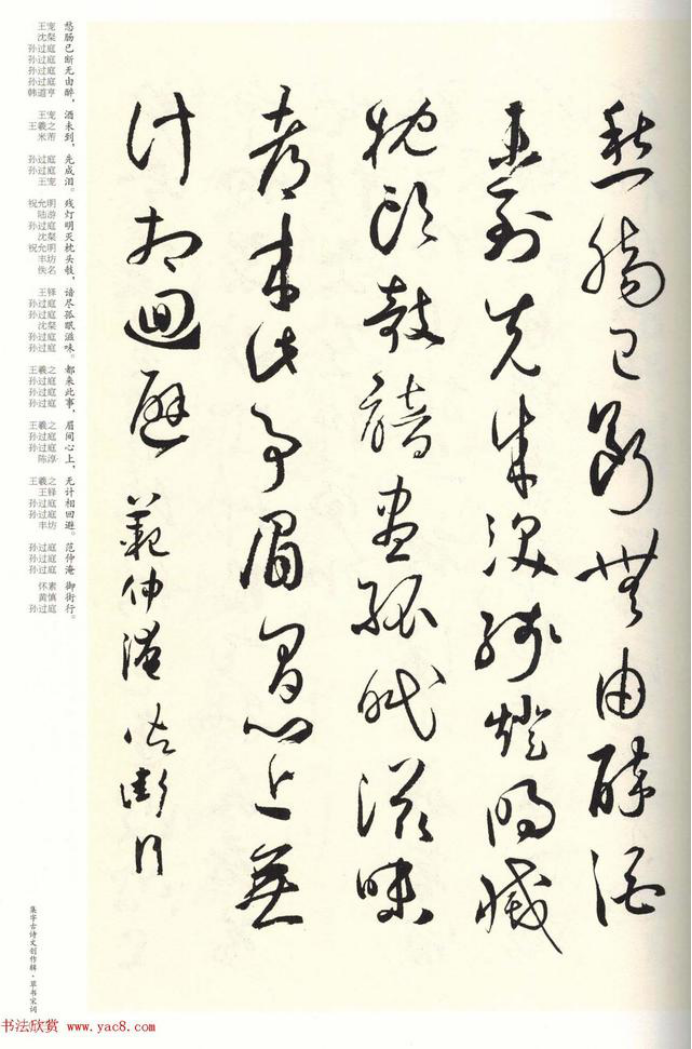 愁腸已斷無由醉酒
未到先成淚殘燈明滅
枕頭欹諳盡孤眠滋味
都来此事眉間心上無
計相迴避 範仲淹 御街行
王宠 愁
沈粲 肠
孙过庭 已
孙过庭 断
孙过庭 无
孙过庭 由
韩道亨 醉，
王宠 酒
王羲之 未
米芾 到，
孙过庭 先
孙过庭 成
王宠 泪。
祝允明 残
陆游 灯
孙过庭 明
沈粲 灭
祝允明 枕
丰坊 头
佚名 欹，
王铎 谙
孙过庭 尽
孙过庭 孤
沈粲 眠
孙过庭 滋
孙过庭 味。
王羲之 都
孙过庭 来
孙过庭 此
孙过庭 事，
王羲之 眉
孙过庭 间
孙过庭 心
陈淳 上，
王羲之 无
王铎 计
孙过庭 相
孙过庭 回
丰坊 避。
孙过庭 范
孙过庭 仲
孙过庭 淹
怀素 御
黄慎 街
孙过庭 行。
集字古诗文创作辑·草书宋词
书法欣赏 www.yac8.com